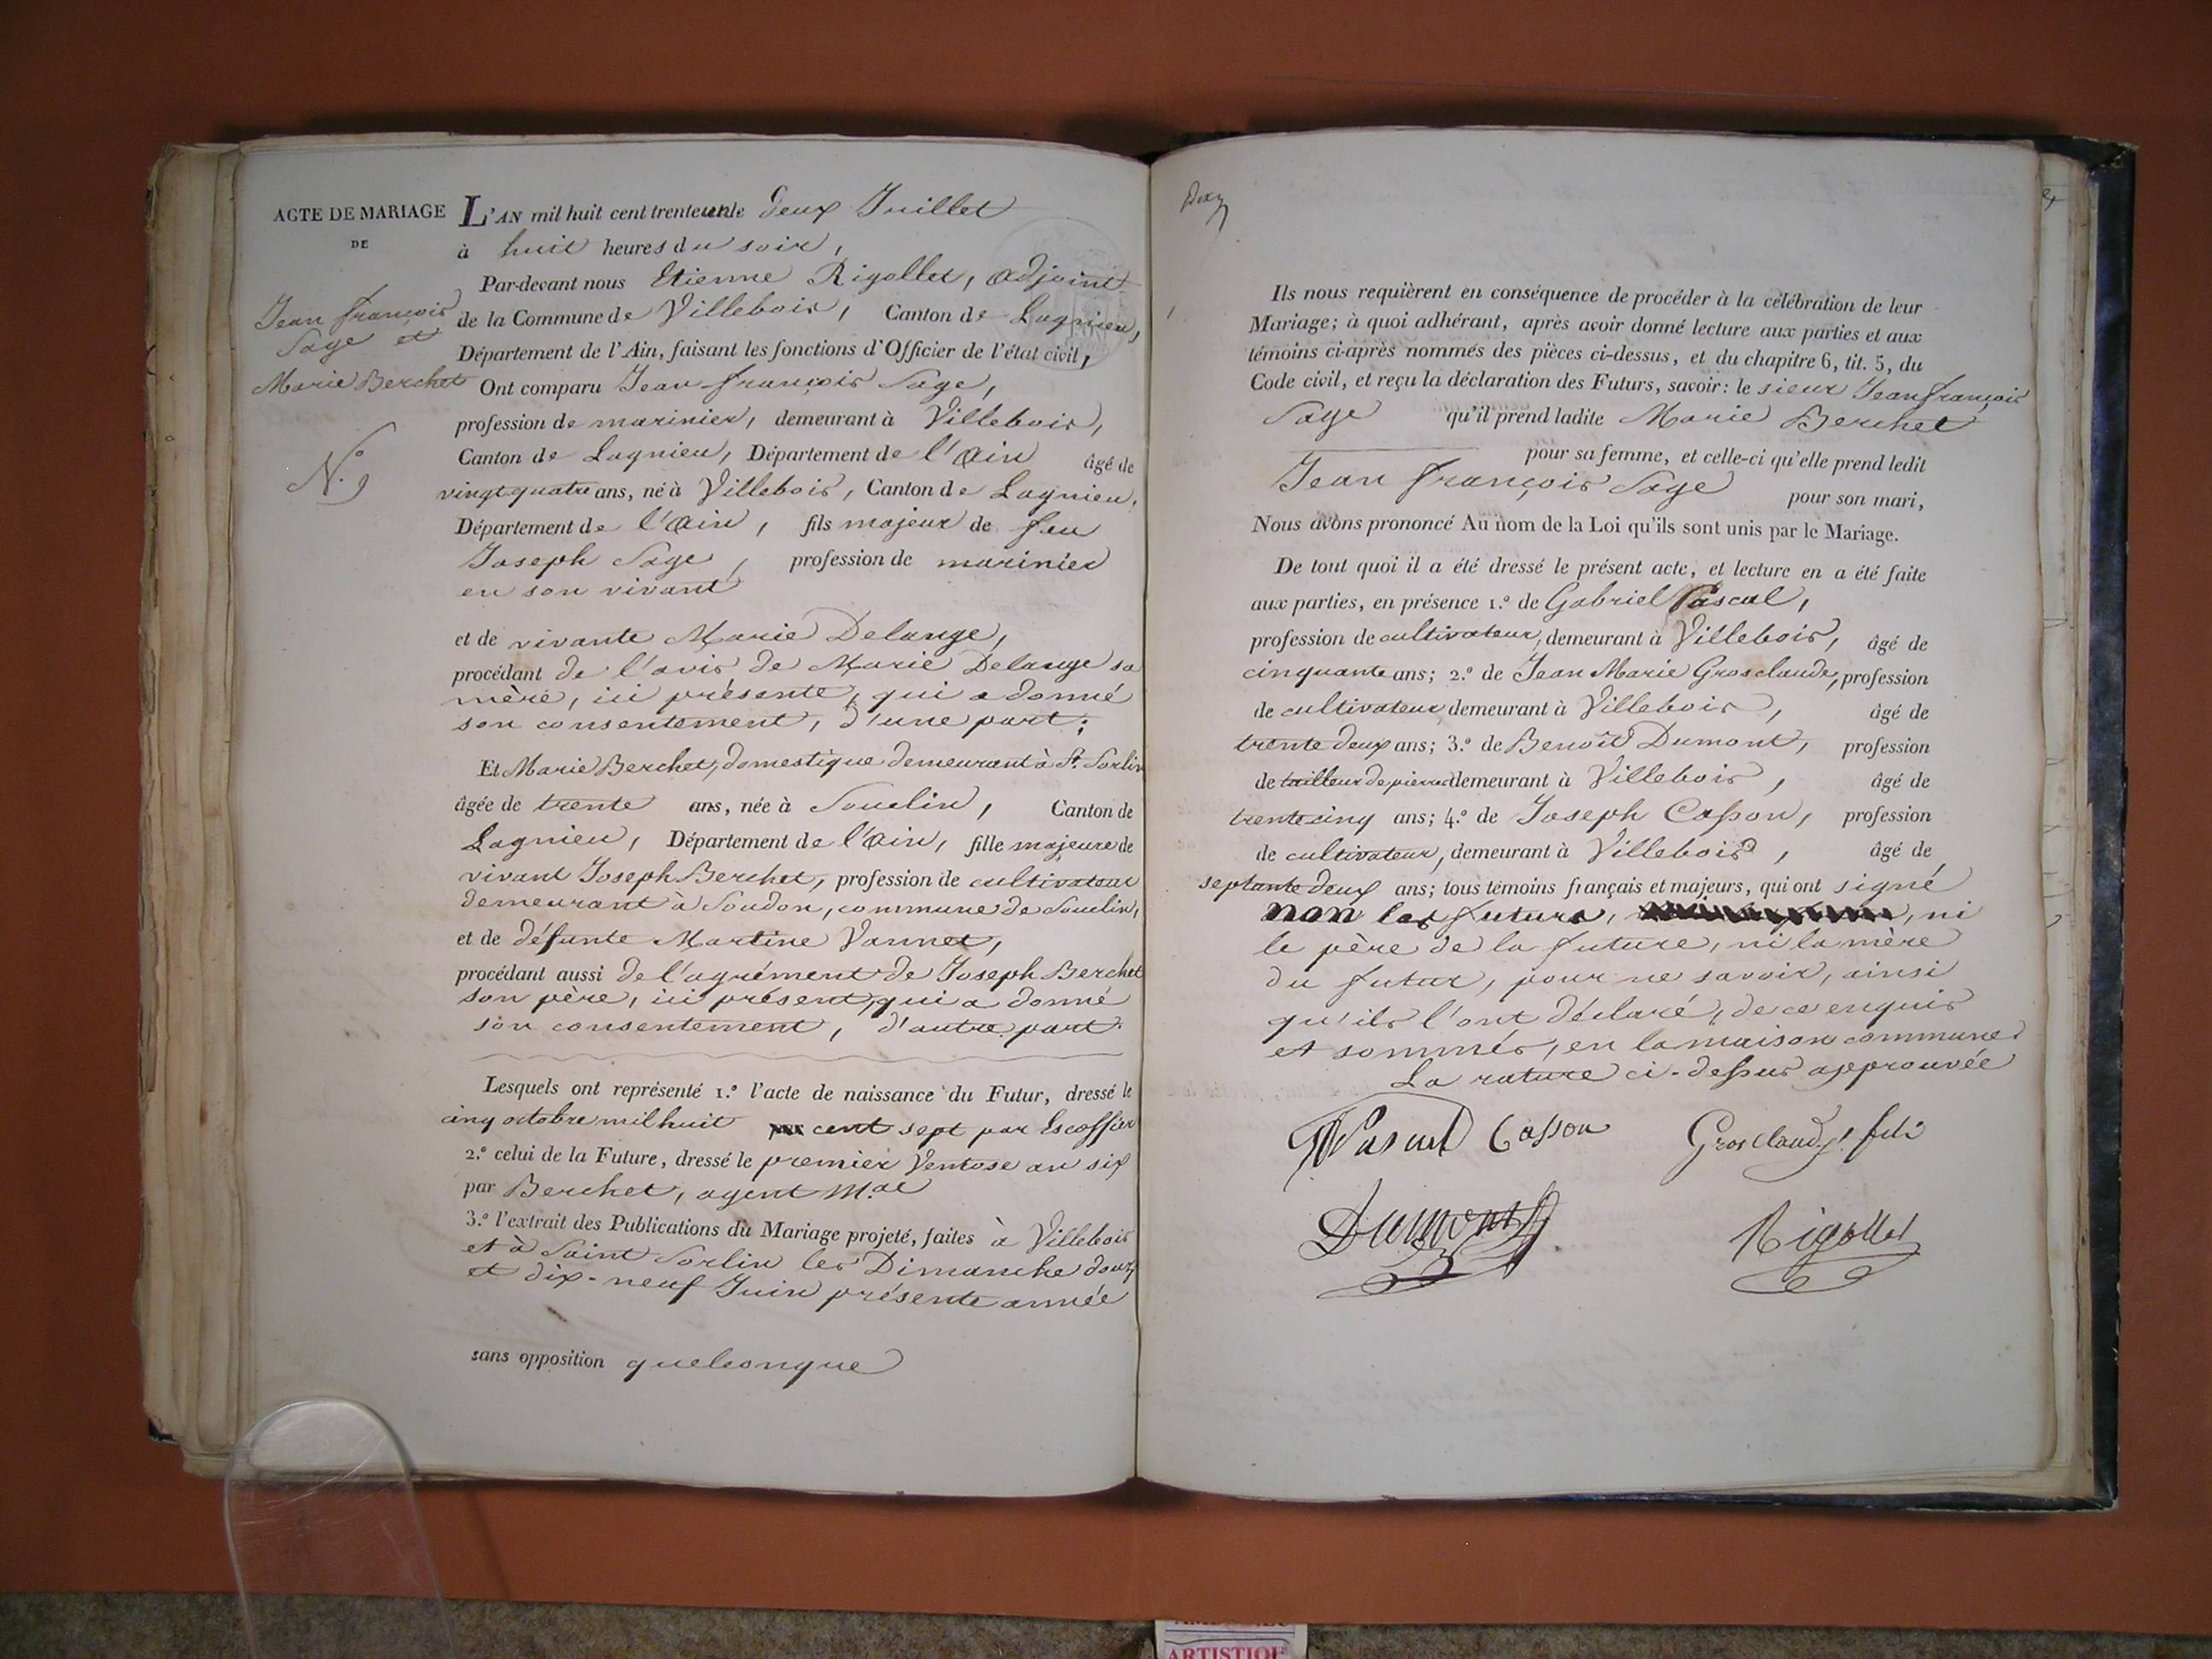 ACTE DE MARIAGE
DE
Jean françois
Sage et
Marie Berchet
N.º 9
L'AN mil huit cent trente un le deux Juillet
à huit heures du soir,
Par-devant nous Etienne Rigollet, adjoint
de la Commune de Villebois, Canton de Lagnieu,
Département de l'Ain, faisant les fonctions d'Officier de l'état civil,
Ont comparu Jean françois Sage,
profession de marinier, demeurant à Villebois,
Canton de Lagnieu, Département de l'Ain âgé de
vingt quatre ans, né à Villebois, Canton de Lagnieu,
Département de l'Ain, fils majeur de feu
Joseph Sage, profession de marinier
en son vivant
et de vivante Marie Delange,
procédant de l'avis de Marie Delange sa
mère, ici présente, qui a donné
son consentement, d'une part;
Et Marie Berchet, domestique demeurant à St. Sorlin
âgée de trente ans, née à Souclin, Canton de
Lagnieu, Département de l'Ain, fille majeure de
vivant Joseph Berchet, profession de cultivateur
demeurant à Soudon, commune de Souclin,
et de défunte Martine Vannet,
procédant aussi de l'agrément de Joseph Berchet
son père, ici présent, qui a donné
son consentement, d'autre part.
Lesquels ont représenté 1.º l'acte de naissance du Futur, dressé le
cinq octobre mil huit cent sept par Escoffier
2.º celui de la Future, dressé le premier Ventose an six
par Berchet, agent M.al
3.º l'extrait des Publications du Mariage projeté, faites à Villebois
et à Saint Sorlin les Dimanche douze
et dix-neuf Juin présente année
sans opposition quelconque
Ils nous requièrent en conséquence de procéder à la célébration de leur
Mariage; à quoi adhérant, après avoir donné lecture aux parties et aux
témoins ci-après nommés des pièces ci-dessus, et du chapitre 6, tit. 5, du
Code civil, et reçu la déclaration des Futurs, savoir: le sieur Jean françois
Sage qu'il prend ladite Marie Berchet
pour sa femme, et celle-ci qu'elle prend ledit
Jean françois Sage pour son mari,
Nous avons prononcé Au nom de la Loi qu'ils sont unis par le Mariage.
De tout quoi il a été dressé le présent acte, et lecture en a été faite
aux parties, en présence 1.º de Gabriel Pascal,
profession de cultivateur, demeurant à Villebois, âgé de
cinquante ans; 2.º de Jean Marie Grosclaude, profession
de cultivateur demeurant à Villebois, âgé de
trente deux ans; 3.º de Benoît Dumont, profession
de tailleur de pierres demeurant à Villebois, âgé de
trente cinq ans; 4.º de Joseph Casson, profession
de cultivateur, demeurant à Villebois, âgé de
septante deux ans; tous témoins français et majeurs, qui ont signé
non les futurs, ni
le père de la future, ni la mère
du futur, pour ne savoir, ainsi
qu'ils l'ont déclaré, de ce enquis
et sommés, en la maison commune.
La rature ci-dessus approuvée
Pascal Casson Grosclaude fils
Dumont Rigollet
ARTISTIQUE